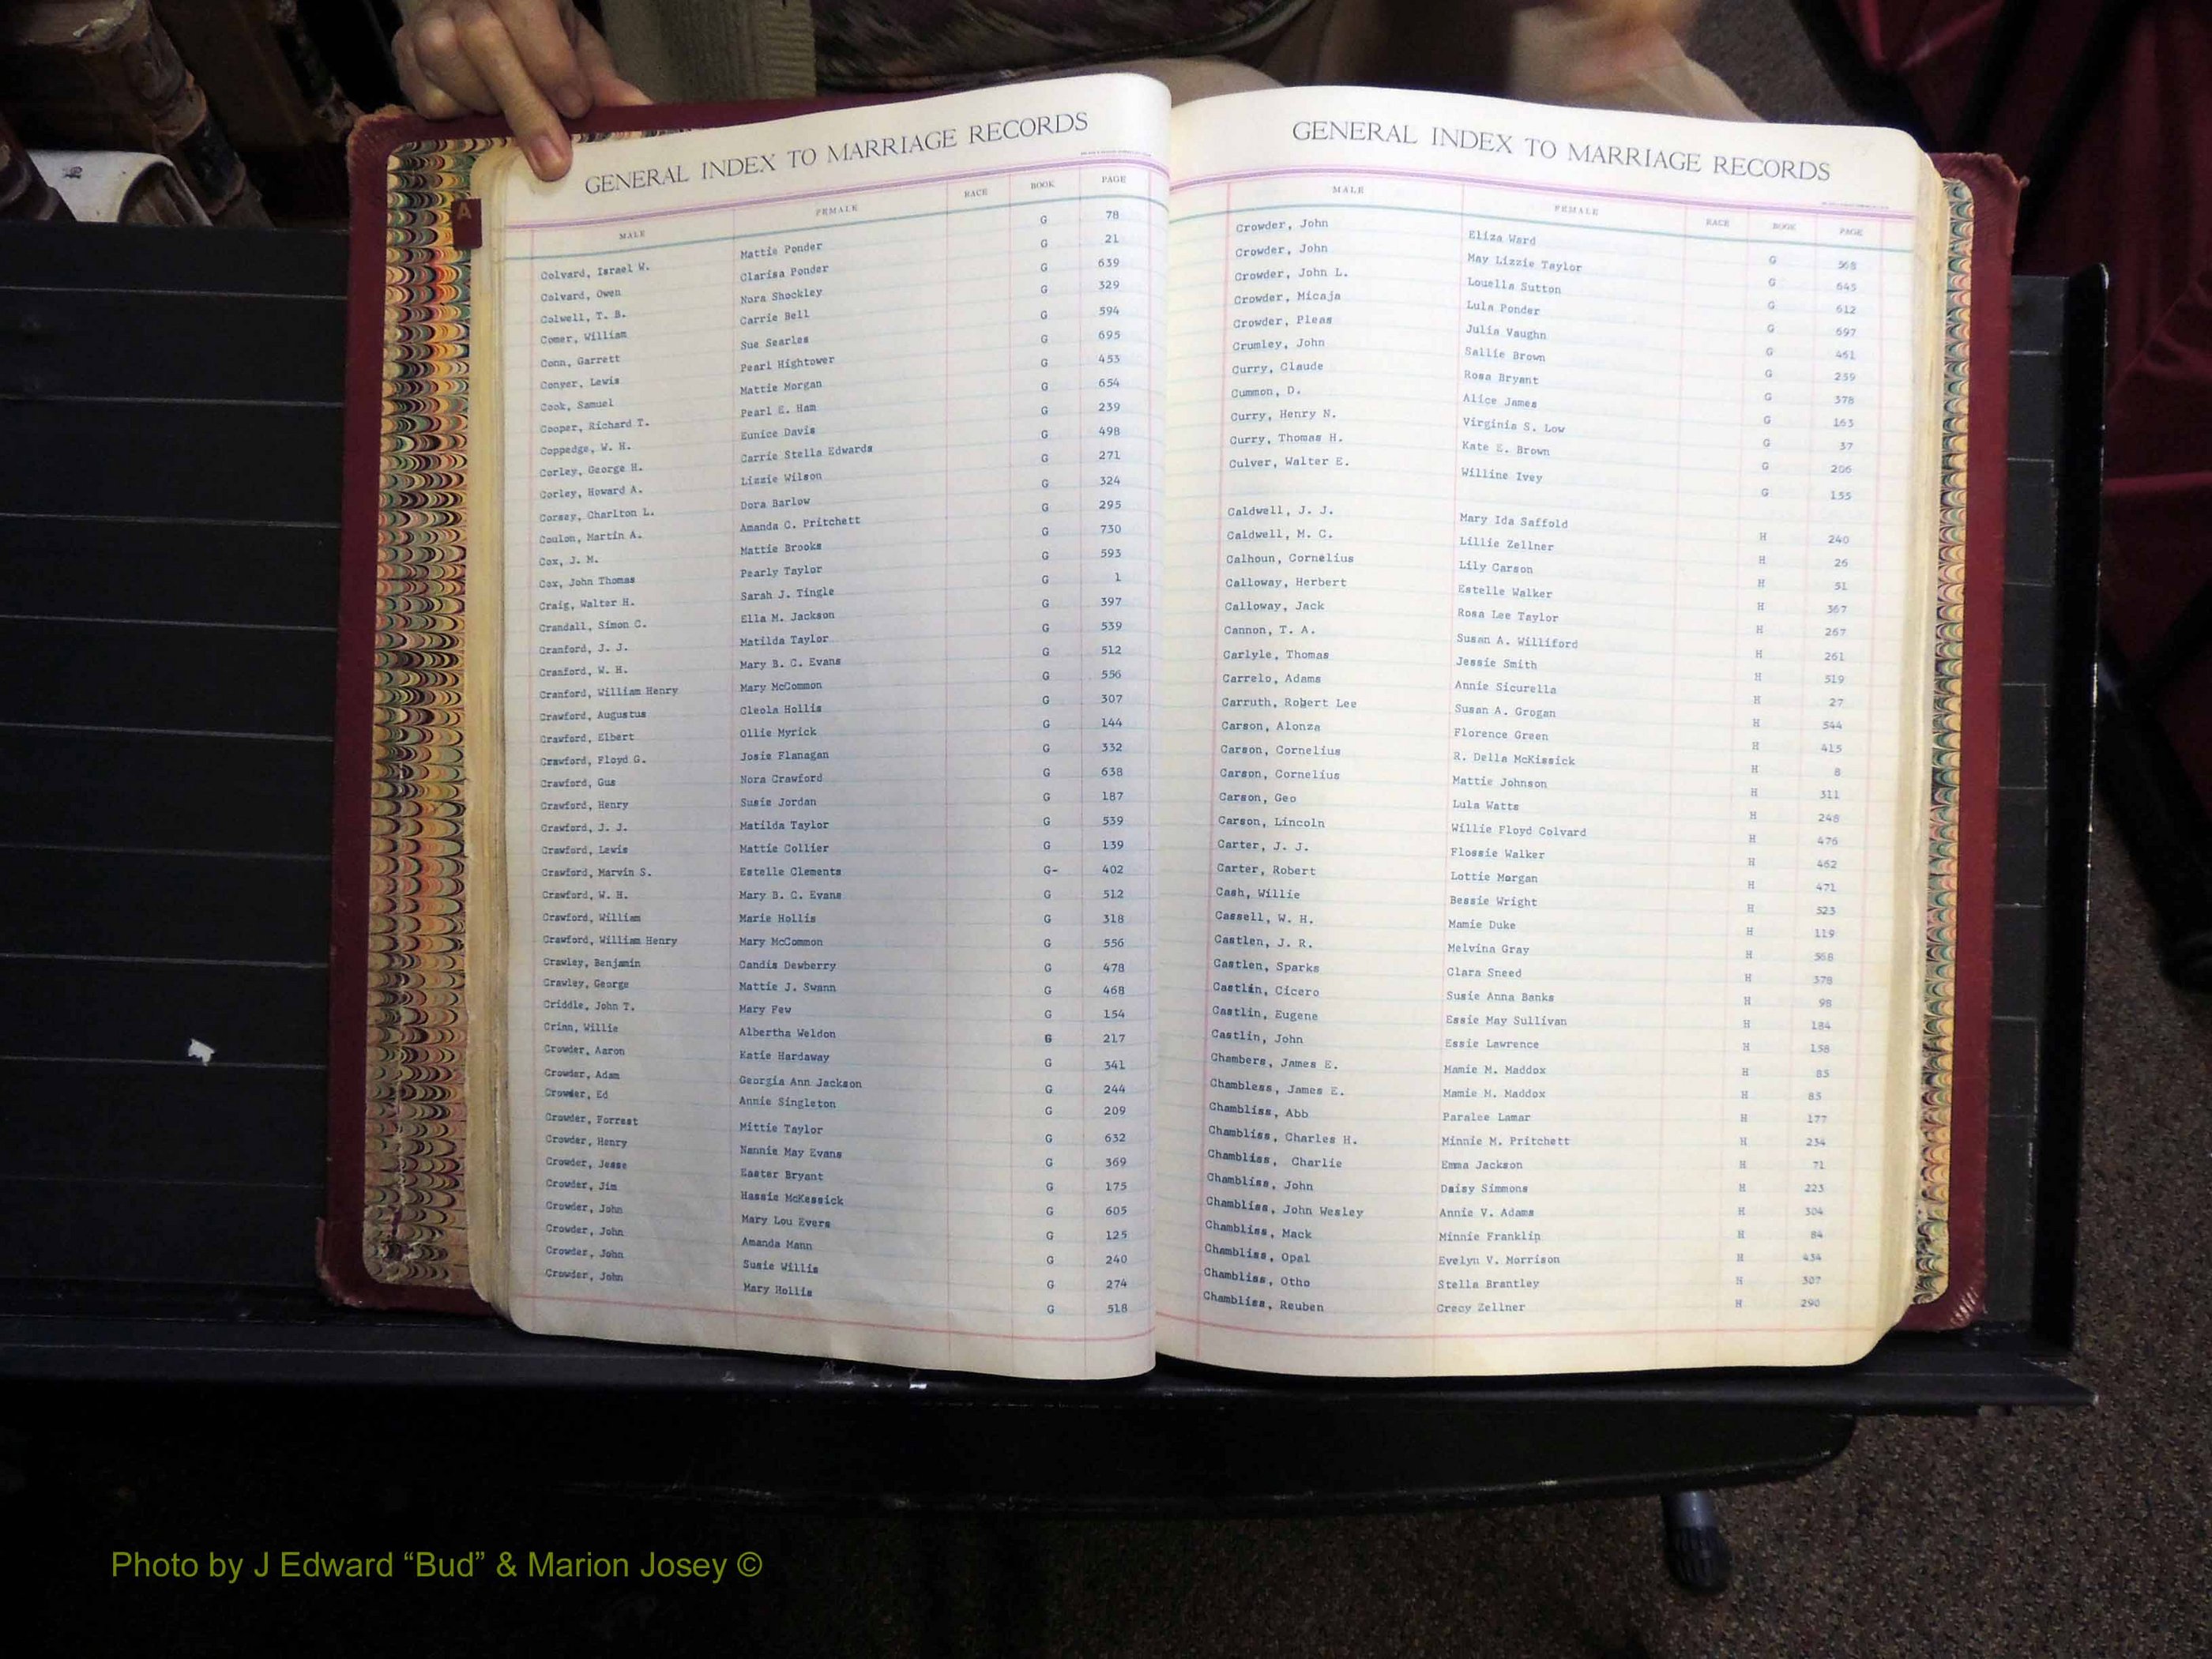 GENERAL INDEX TO MARRIAGE RECORDS
MALE FEMALE RACE BOOK PAGE
Colvard, Israel W. Mattie Ponder G 78
Colvard, Owen Clarisa Ponder G 21
Colwell, T. B. Nora Shockley G 639
Comer, William Carrie Bell G 329
Conn, Garrett Sue Searles G 594
Conyer, Lewis Pearl Hightower G 695
Cook, Samuel Mattie Morgan G 453
Cooper, Richard T. Pearl E. Ham G 654
Coppedge, W. H. Eunice Davis G 239
Corley, George H. Carrie Stella Edwards G 498
Corley, Howard A. Lizzie Wilson G 271
Corsey, Charlton L. Dora Barlow G 324
Coulon, Martin A. Amanda C. Pritchett G 295
Cox, J. M. Mattie Brooks G 730
Cox, John Thomas Pearly Taylor G 593
Craig, Walter H. Sarah J. Tingle G 1
Crandall, Simon C. Ella M. Jackson G 397
Cranford, J. J. Matilda Taylor G 539
Cranford, W. H. Mary B. C. Evans G 512
Cranford, William Henry Mary McCommon G 556
Crawford, Augustus Cleola Hollis G 307
Crawford, Elbert Ollie Myrick G 144
Crawford, Floyd G. Josie Flanagan G 332
Crawford, Gus Nora Crawford G 638
Crawford, Henry Susie Jordan G 187
Crawford, J. J. Matilda Taylor G 539
Crawford, Lewis Mattie Collier G 139
Crawford, Marvin S. Estelle Clements G- 402
Crawford, W. H. Mary B. C. Evans G 512
Crawford, William Marie Hollis G 318
Crawford, William Henry Mary McCommon G 556
Crawley, Benjamin Candis Dewberry G 478
Crawley, George Mattie J. Swann G 468
Criddle, John T. Mary Few G 154
Crinn, Willie Albertha Weldon G 217
Crowder, Aaron Katie Hardaway G 341
Crowder, Adam Georgia Ann Jackson G 244
Crowder, Ed Annie Singleton G 209
Crowder, Forrest Mittie Taylor G 632
Crowder, Henry Nannie May Evans G 369
Crowder, Jesse Easter Bryant G 175
Crowder, Jim Hassie McKessick G 605
Crowder, John Mary Lou Evers G 125
Crowder, John Amanda Mann G 240
Crowder, John Susie Willis G 274
Crowder, John Mary Hollis G 518
GENERAL INDEX TO MARRIAGE RECORDS
MALE FEMALE RACE BOOK PAGE
Crowder, John Eliza Ward G 568
Crowder, John May Lizzie Taylor G 645
Crowder, John L. Louella Sutton G 612
Crowder, Micaja Lula Ponder G 697
Crowder, Pleas Julia Vaughn G 451
Crumley, John Sallie Brown G 259
Curry, Claude Rosa Bryant G 378
Cummon, D. Alice James G 163
Curry, Henry N. Virginia S. Low G 37
Curry, Thomas H. Kate E. Brown G 206
Culver, Walter E. Willine Ivey G 155
Caldwell, J. J. Mary Ida Saffold H 240
Caldwell, M. C. Lillie Zellner H 26
Calhoun, Cornelius Lily Carson H 51
Calloway, Herbert Estelle Walker H 367
Calloway, Jack Rosa Lee Taylor H 267
Cannon, T. A. Susan A. Williford H 261
Carlyle, Thomas Jessie Smith H 519
Carrelo, Adams Annie Sicurella H 27
Carruth, Robert Lee Susan A. Grogan H 544
Carson, Alonza Florence Green H 415
Carson, Cornelius R. Della McKissick H 8
Carson, Cornelius Mattie Johnson H 311
Carson, Geo Lula Watts H 248
Carson, Lincoln Willie Floyd Colvard H 476
Carter, J. J. Flossie Walker H 462
Carter, Robert Lottie Morgan H 471
Cash, Willie Bessie Wright H 523
Cassell, W. H. Mamie Duke H 119
Castlen, J. R. Melvina Gray H 568
Castlen, Sparks Clara Sneed H 378
Castlin, Cicero Susie Anna Banks H 98
Castlin, Eugene Essie May Sullivan H 184
Castlin, John Essie Lawrence H 158
Chambers, James E. Mamie M. Maddox H 85
Chambless, James E. Mamie M. Maddox H 85
Chambliss, Abb Paralee Lamar H 177
Chambliss, Charles H. Minnie M. Pritchett H 234
Chambliss, Charlie Emma Jackson H 71
Chambliss, John Daisy Simmons H 223
Chambliss, John Wesley Annie V. Adams H 304
Chambliss, Mack Minnie Franklin H 84
Chambliss, Opal Evelyn V. Morrison H 434
Chambliss, Otho Stella Brantley H 307
Chambliss, Reuben Crecy Zellner H 290
A
Photo by J Edward “Bud” & Marion Josey ©